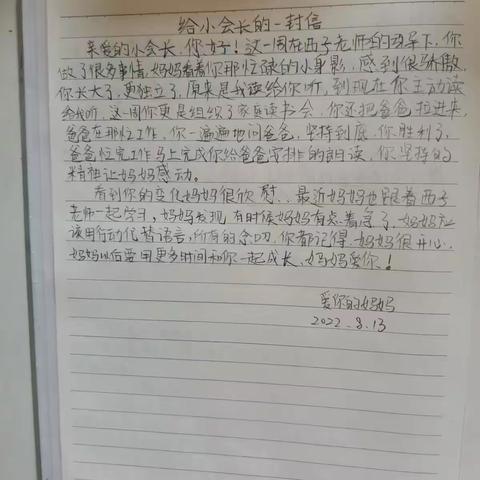 给小会长的一封信
亲爱的小会长，你好！这一周在西子老师的的引导下，你
做了很多事情，妈妈看着你那忙碌的小身影，感到很骄傲，
你长大了，更独立了，原来是我读给你听，到现在你主动读
给我听，这一周你更是组织了家庭读书会，你还把爸爸拉进来，
爸爸在那忙工作，你一遍遍地问爸爸，坚持到底，你胜利了，
爸爸忙完工作马上完成你给爸爸安排的朗读，你坚持的
精神让妈妈感动。
看到你的变化妈妈很欣慰、最近妈妈也跟着西子
老师一起学习，妈妈发现有时候妈妈有点着急了，妈妈应
该用行动代替语言，所有的念叨，你都记得，妈妈很开心，
妈妈以后要用更多时间和你一起成长，妈妈爱你！
爱你的妈妈
2022.8.13